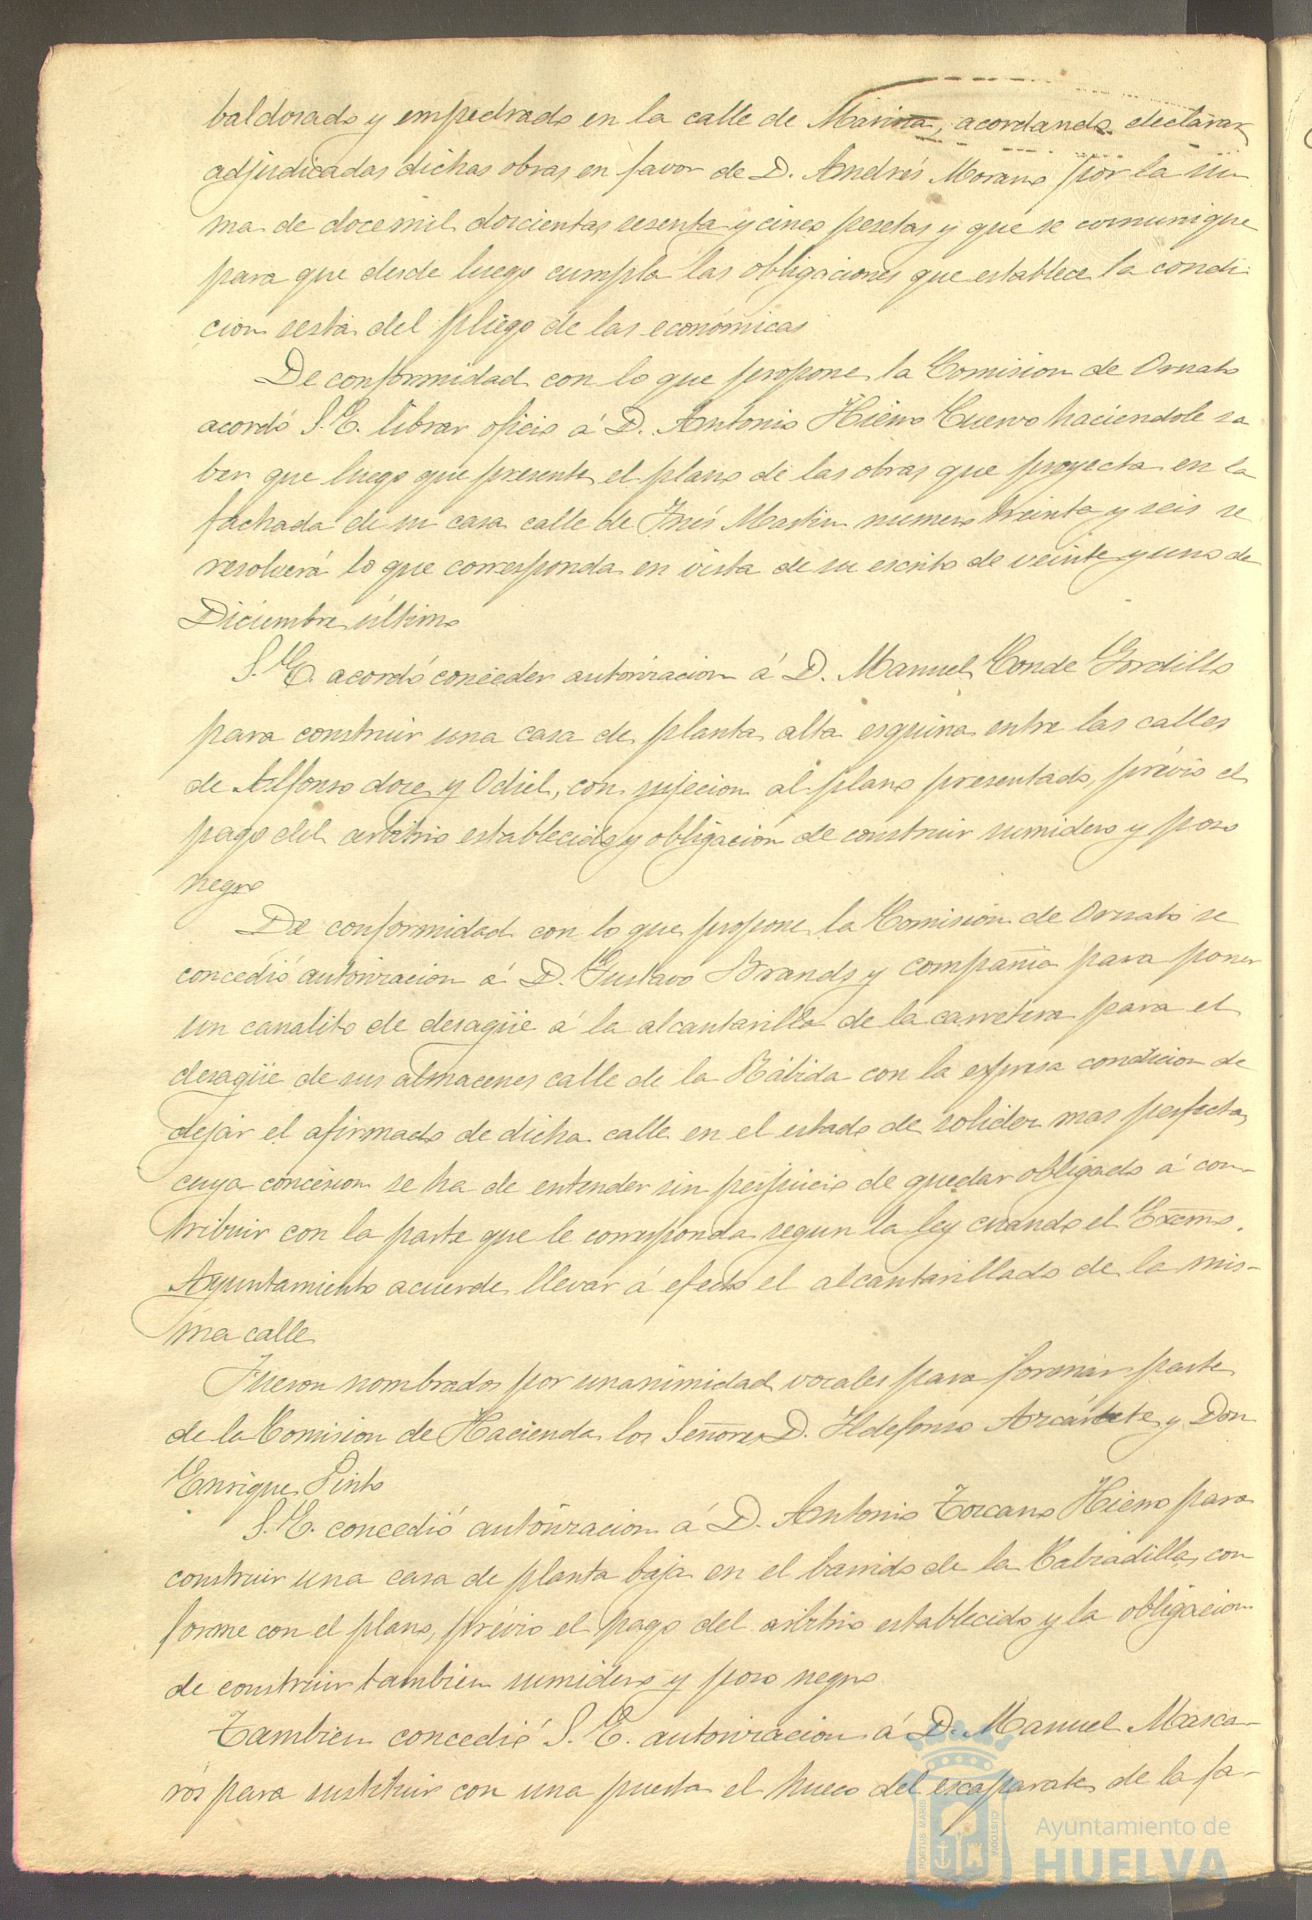 baldosado y empedrado en la calle de Marina, acordando declarar
adjudicadas dichas obras en favor de D. Andrés Morano por la su
ma de doce mil doscientas sesenta y cinco pesetas y que se comunique
para que desde luego cumpla las obligaciones que establece la condi-
cion sesta del pliego de las económicas
De conformidad con lo que propone la Comision de Ornato
acordó S. E. librar oficio á D. Antonio Hierro Cuervo haciendole sa
ber que luego que presente el plano de las obras que proyecta en la
fachada de su casa calle de Inés Martin numero treinta y seis se
resolverá lo que corresponda en vista de su escrito de veinte y uno de
Diciembre último
S. E. acordó conceder autorizacion á D. Manuel Conde Gordillo
para construir una casa de planta alta esquina entre las calles
de Alfonso doce y Odiel, con sujecion al plano presentado, prévio el
pago del arbitrio establecido y obligacion de construir sumidero y pozo
negro
De conformidad con lo que propone la Comision de Ornato se
concedió autorizacion á D. Gustavo Brands y compañia para poner
un canalito de desagüe á la alcantarilla de la carretera para el
desagüe de sus almacenes calle de la Rábida con la espresa condicion de
dejar el afirmado de dicha calle en el estado de solidez mas perfecta,
cuya concesion se ha de entender sin perjuicio de quedar obligado á con-
tribuir con la parte que le corresponda segun la ley cuando el Excmo.
Ayuntamiento acuerde llevar á efecto el alcantarillado de la mis-
ma calle
Fueron nombrados por unanimidad vocales para formar parte
de la Comision de Hacienda los Señores D. Ildefonso Azcárate y Don
Enrique Pinto
S. E. concedió autorizacion á D. Antonio Toscano Hierro para
construir una casa de planta baja en el barrido de la Calzadilla, con
forme con el plano, prévio el pago del arbitrio establecido y la obligacion
de construir tambien sumidero y pozo negro
Tambien concedió S. E. autorizacion á D. Manuel Masca-
rós para sustituir con una puerta el hueco del escaparate de la fa-
Ayuntamiento de
HUELVA